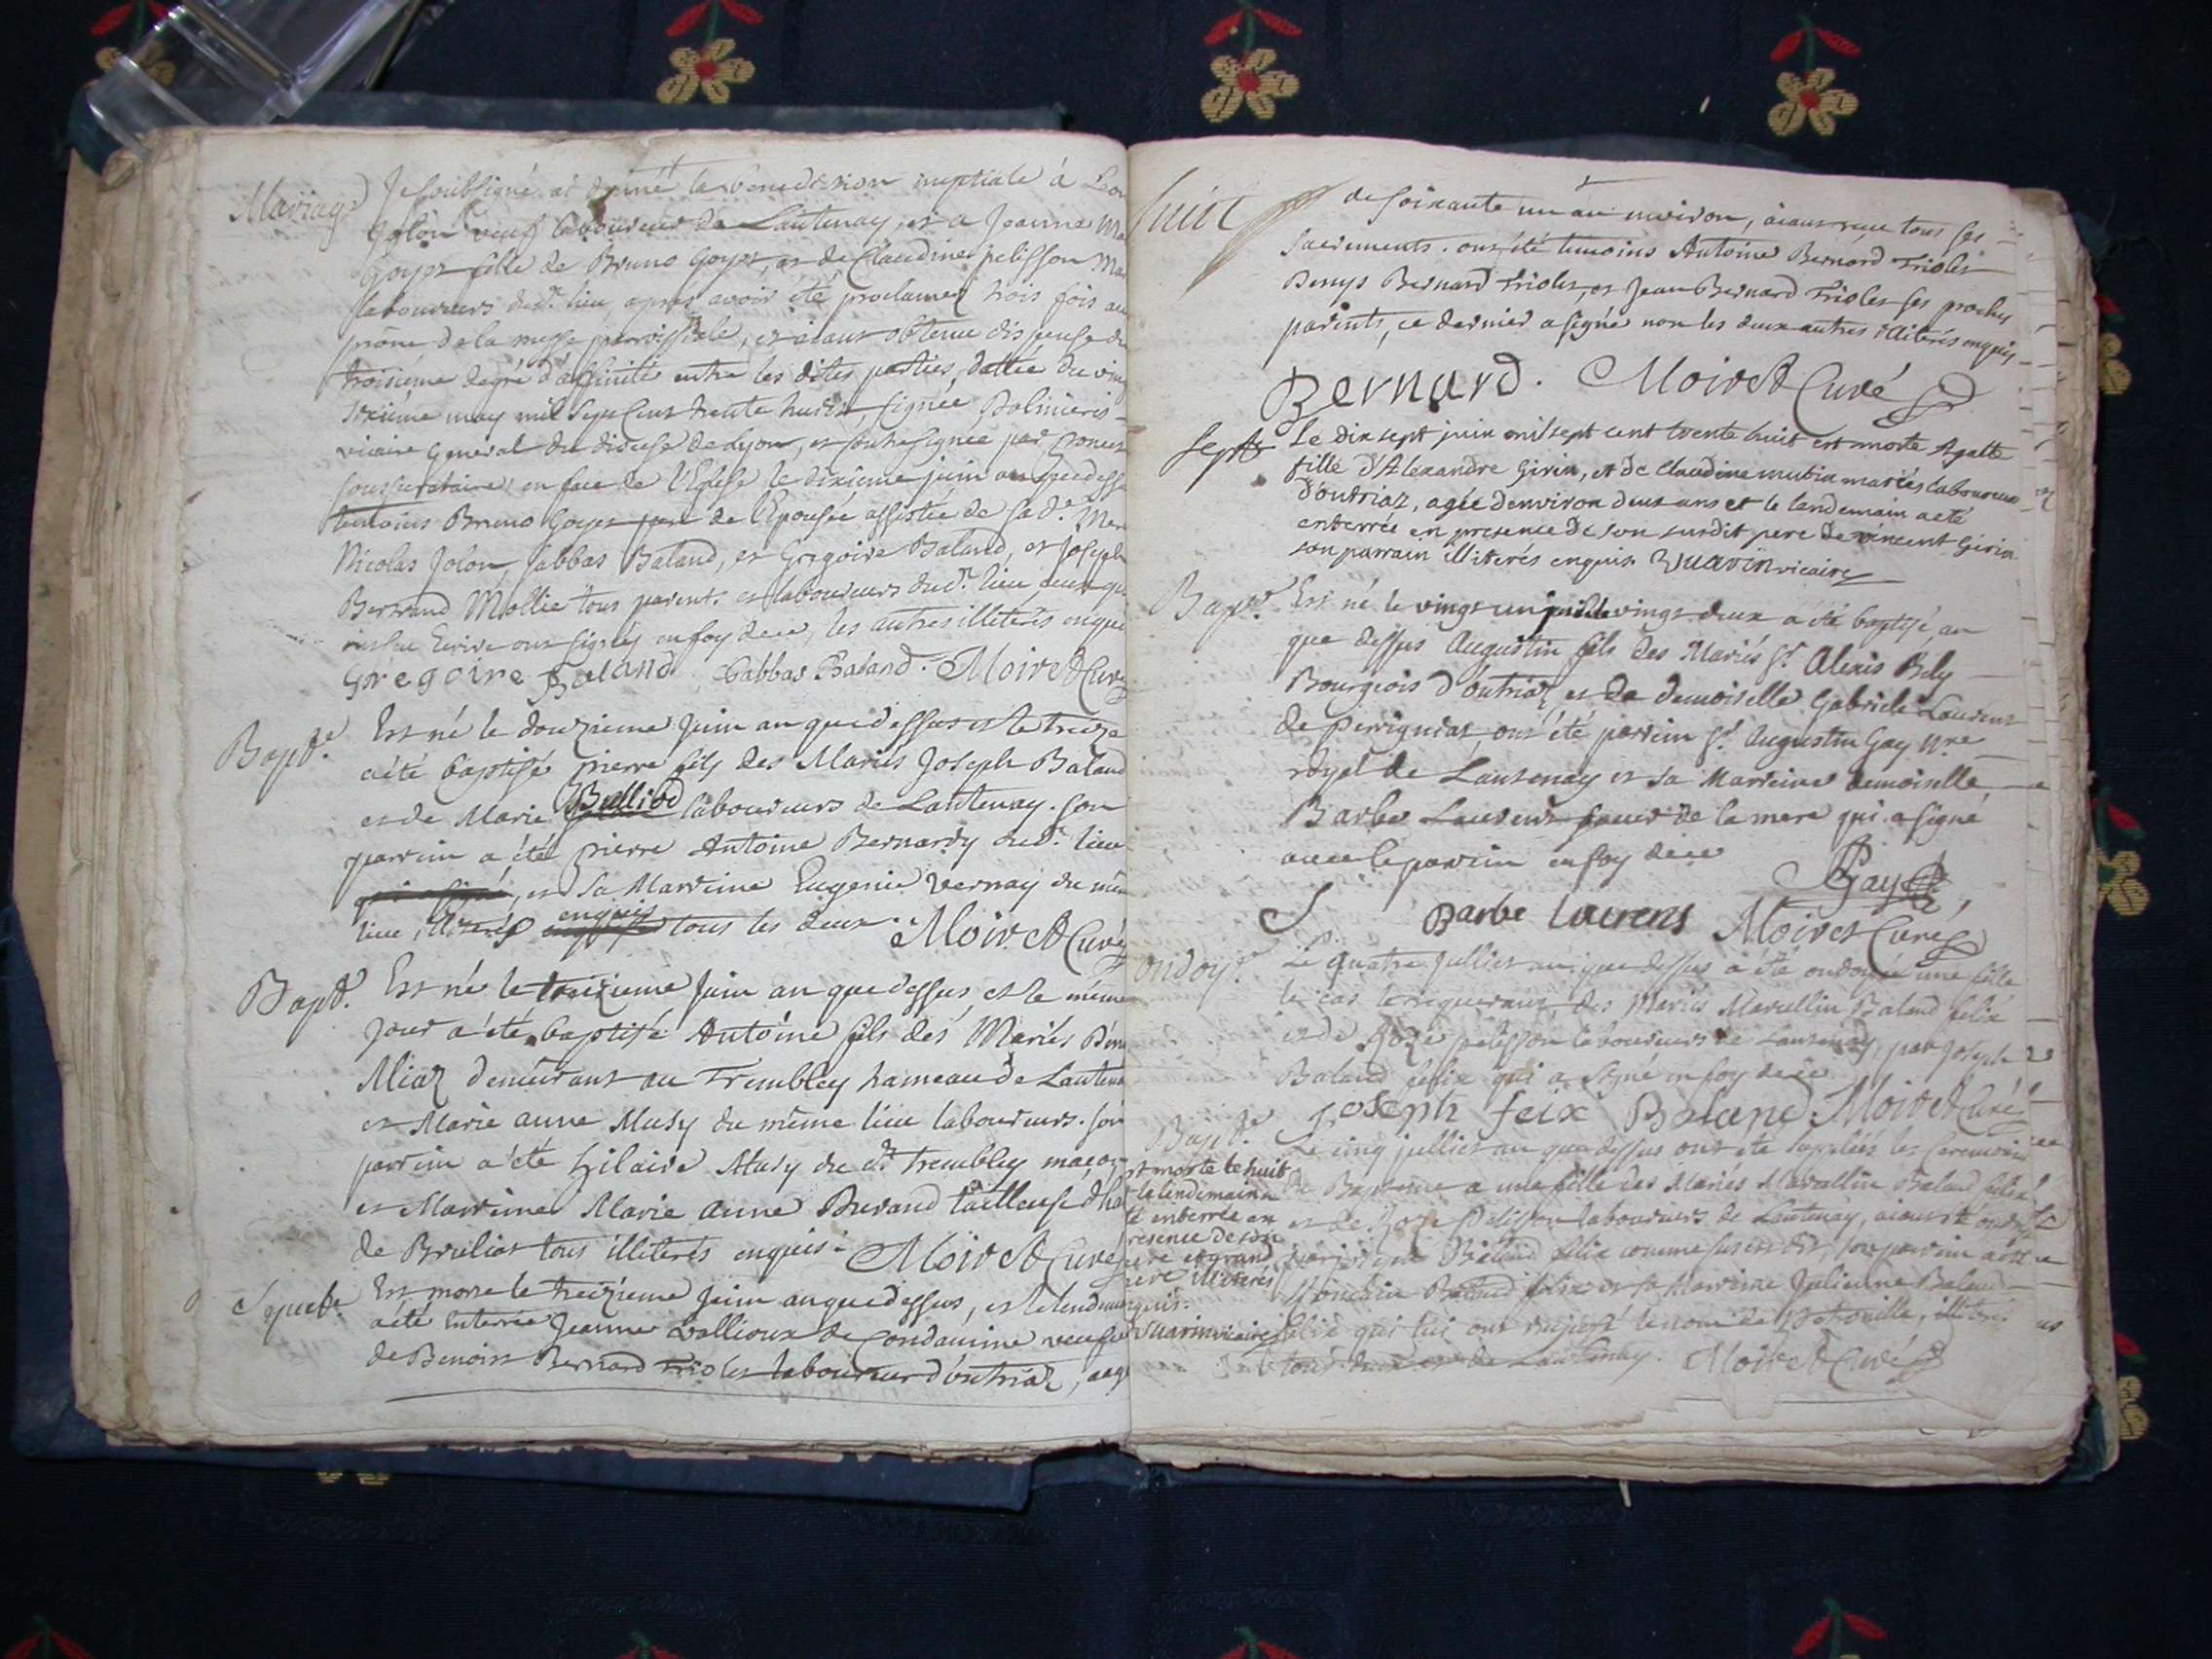 Mariage
Je soubsigné ai donné la bénédiction nuptiale à Leon
Jolon veuf laboureur de Lantenay, et a Jeanne Ma
Goyet fille de Bruno Goyet, et de Claudine pelisson Ma
laboureurs dud.t lieu, apres avoir été proclamez trois fois au
prône de la messe parroissiale, et aiant obtenue dispense du
troisiéme degré d'affinité entre les dites parties, dattée du vin
sixiéme may mil sept cent trente huit, signée
vicaire general du diocese de Lyon, et contresignée par
soussecretaire, en face de l'Eglise le dixiéme juin an que dessu
temoins Bruno Goyet pere de l'Epousée assistée de sa d.e Mere
Nicolas Jolon, Sabbas Baland, et Gregoire Baland, et Joseph
Bertrand Mollie tous parents et laboureurs dud.t lieu, ceux qui
ont sçu Ecrire ont signés en foy de ce, les autres illiterés enquis
Gregoire Baland Sabbas Baland. Moiret Curé
Bapt.e
Est né le douzieme Juin an que dessus et le treize
a été baptisé pierre fils des Mariés Joseph Baland
et de Marie Bulliod laboureurs de Lantenay. son
parrein a été pierre Antoine Bernardy dud.t lieu
et sa Marreine Eugenie Vernay du même
lieu, illiterés enquis tous les deux. Moiret Curé
Bapt.
Est né le treizieme Juin an que dessus, et le même
jour a été baptisé Antoine fils des Mariés
Miaz demeurant au Trembley hameau de Lantena
et Marie anne Musy du même lieu laboureurs. son
parrein a été hilaire Musy du d.t trembley maçon
et Marreine Marie anne Durand tailleuse d'ha
de Brulias tous illiterés enquis. Moiret Curé
Sepult.
Est morte le treiziéme Juin an que dessus, et le lendemain
a été Enterrée Jeanne Vallioux de Condamine veufve
de Benoist Bernard Triolet laboureur d'outriaz, aag
huit
de soixante un an environ, aiant recu tous ses
sacrements. ont été temoins Antoine Bernard Triolet
Denys Bernard Triolet, et Jean Bernard Triolet ses proches
parents, ce dernier a signé non les deux autres illiterés enquis
Bernard. Moiret Curé
Sept
Le dix sept juin mil sept cent trente huit est morte Agatte
fille d'Alexandre Girin, et de Claudine mutin mariés laboureurs
d'outriaz, agée d'environ deux ans et le lendemain a eté
enterrée en presence de son susdit pere de vincent Girin
son parrain illiterés enquis Vuarin vicaire
Bapt.
Est né le vingt un juin le vingt deux a été baptisé, an
que dessus Augustin fils des Mariés S.r Alexis Bely
Bourgeois d'outriaz, et de demoiselle Gabriele Laurent
de perrignat, ont été parrein S.r Augustin Gay N.re
royal de Lantenay et sa Marreine demoiselle
Barbe Laurent soeur de la mere qui a signé
avec le parrein en foy de ce
Gay
Barbe laurens Moiret Curé
ondoy.
Le quatre Julliet an que dessus a été ondoyée une fille
le cas le requerant, des Mariés Marcellin Baland felix
et de Roze pelisson laboureurs de Lantenay, par Joseph
Baland felix qui a signé en foy de ce
Joseph feix Baland Moiret Curé
Bapt.e
Le cinq julliet an que dessus ont été suppleés les Ceremonies
de Bapteme a une fille des Mariés Marcellin Baland felix
et de Roze Pelisson laboureurs de Lantenay, aiant été ondoyée
par joseph Baland felix comme sus est dit, son parrein a été
Baland felix et sa Marreine Julienne Baland
felix qui lui ont imposé le nom de Petronille, illiterés
tous deux et de Lantenay. Moiret Curé
est morte le huit
le lendemain a
té enterrée en
resence de son
pere et grand
pere illiterés
nquis.
Vuarin vicaire